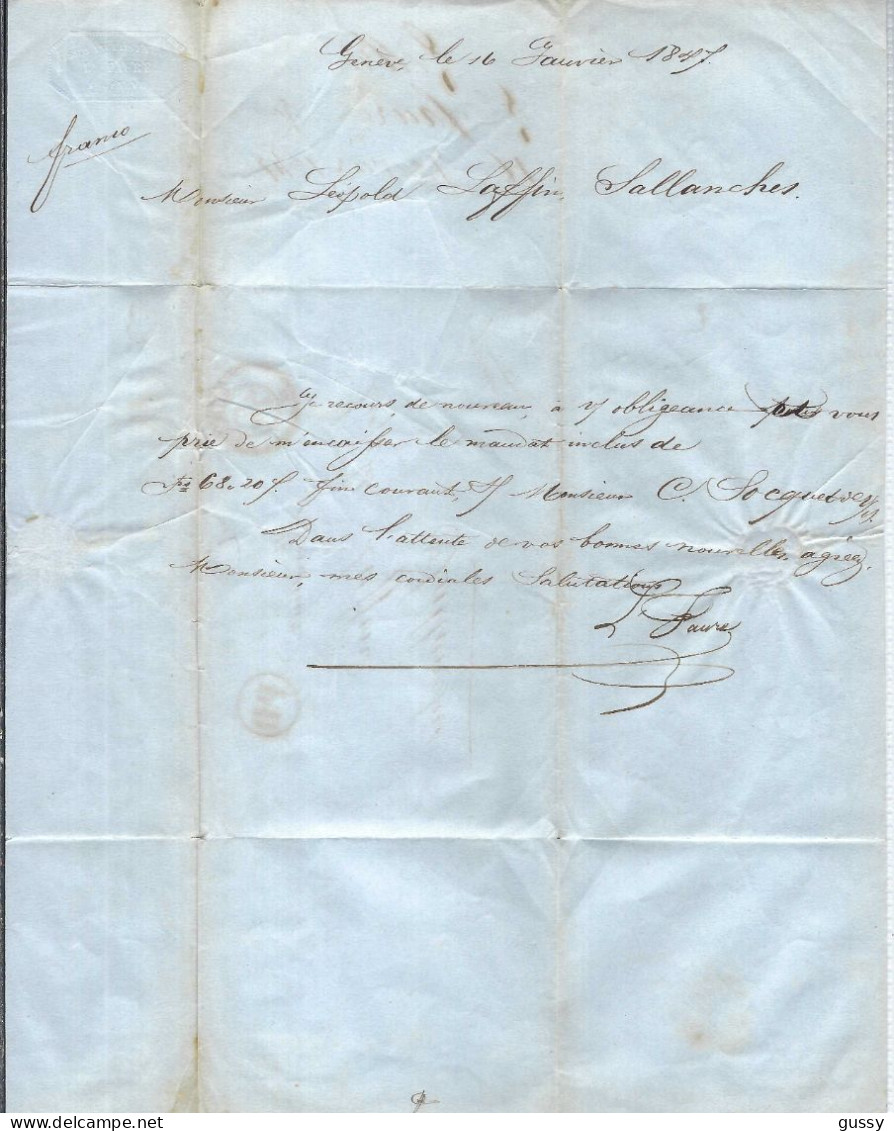 Genève, le 16 Janvier 1847.
franco
Monsieur Léopold Laffin, Sallanches.
Je recours de nouveau, à v/ obligeance vous
prie de m'encaisser le mandat inclus de
fs 68.20 f. fin courant, s/ Monsieur C. Socquet
Dans l'attente de vos bonnes nouvelles, agréez,
Monsieur, mes cordiales Salutations
Faure
delcampe.net
gussy